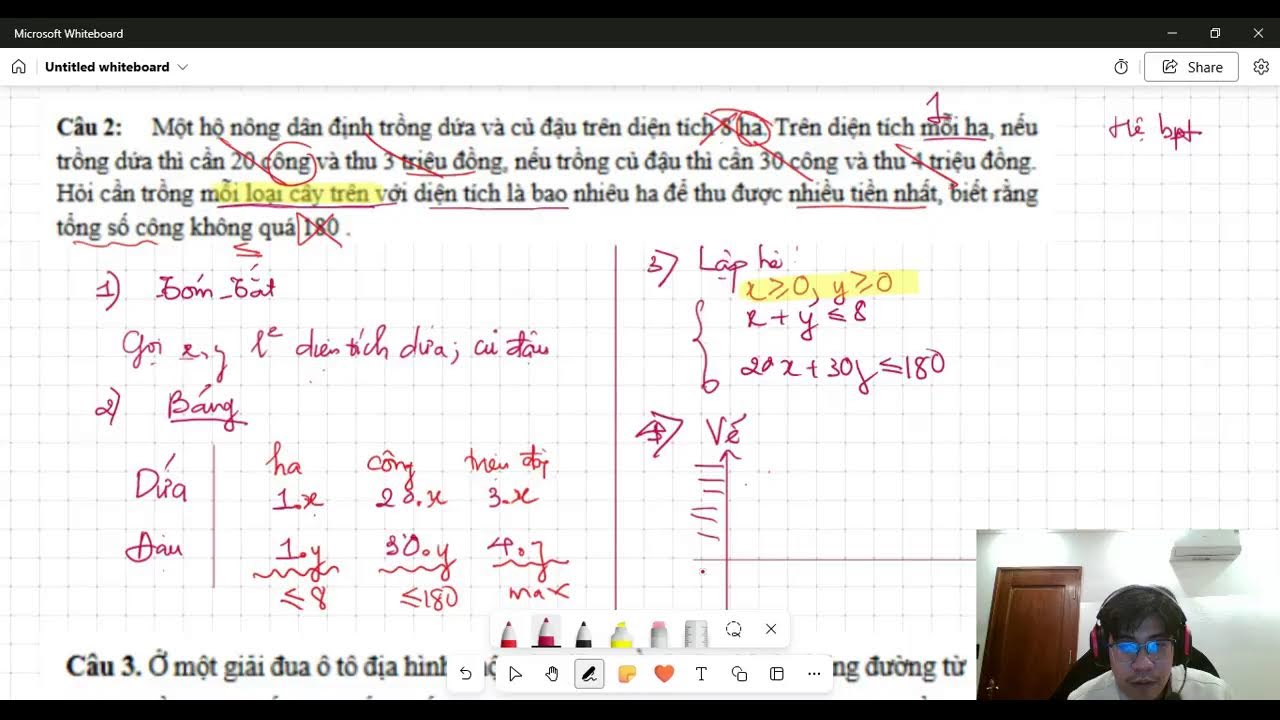 Microsoft Whiteboard
Untitled whiteboard
Share
Câu 2: Một hộ nông dân định trồng dứa và củ đậu trên diện tích 8 ha. Trên diện tích mỗi ha, nếu
1
Hệ bpt
trồng dứa thì cần 20 công và thu 3 triệu đồng, nếu trồng củ đậu thì cần 30 công và thu 4 triệu đồng.
Hỏi cần trồng mỗi loại cây trên với diện tích là bao nhiêu ha để thu được nhiều tiền nhất, biết rằng
tổng số công không quá 180 .
≤
1) Tóm tắt
Gọi x, y là diện tích dứa; củ đậu
2) Bảng
ha công triệu đồng
Dứa 1.x 20.x 3.x
Đậu 1.y 30.y 4.y
≤8 ≤180 max
3) Lập hệ:
x ≥ 0, y ≥ 0
x + y ≤ 8
20x + 30y ≤ 180
4) Vẽ
T
Câu 3. Ở một giải đua ô tô địa hình
đường từ